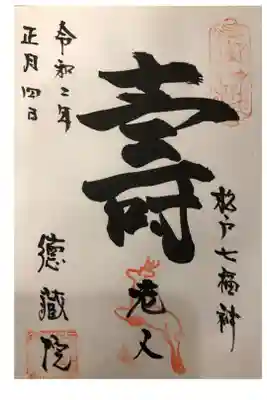 杉戸七福神
壽
老人
令和二年
正月四日
徳蔵院